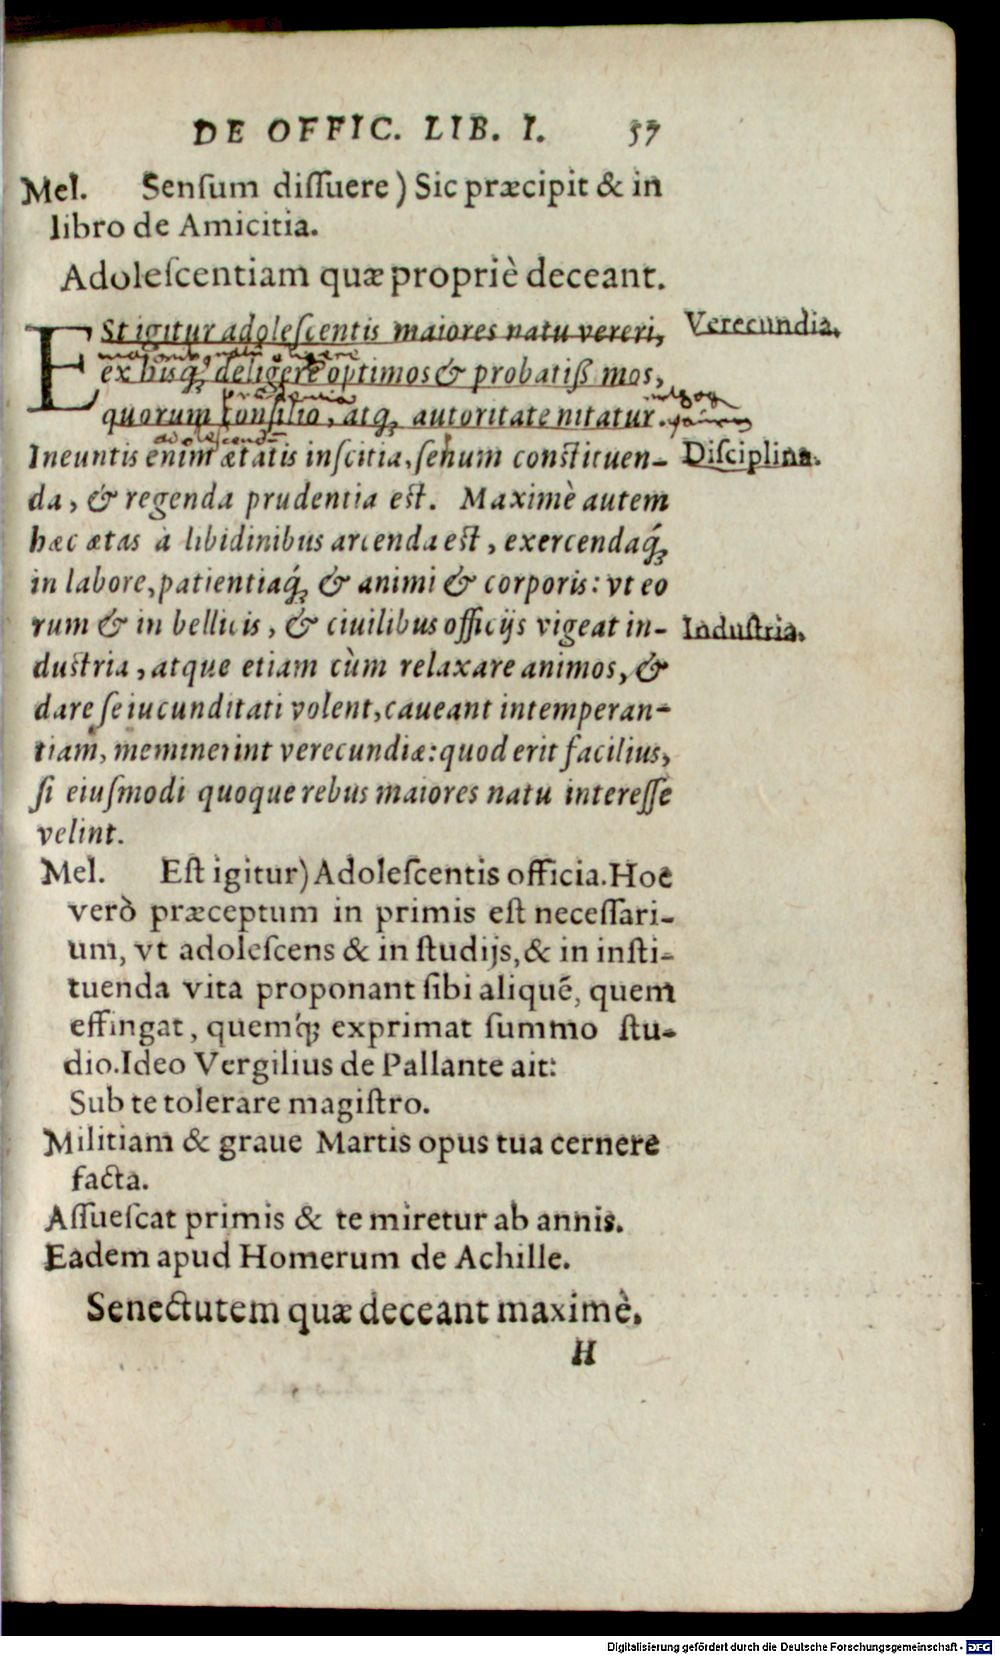 DE OFFIC. LIB. I. 57
Mel. Senſum diſſuere) Sic præcipit & in
libro de Amicitia.
Adoleſcentiam quæ propriè deceant.
ESt igitur adoleſcentis maiores natu vereri,
Verecundia.
ex hisq́; deligere optimos & probatiſſimos,
quorum conſilio, atq; autoritate nitatur.
Ineuntis enim ætatis inſcitia, ſenum conſtituen-
Diſciplina.
da, & regenda prudentia eſt. Maximè autem
hæc ætas à libidinibus arcenda eſt, exercendaq́;
in labore, patientiaq́; & animi & corporis: vt eo
rum & in bellicis, & ciuilibus officijs vigeat in-
Induſtria.
duſtria, atque etiam cùm relaxare animos, &
dare ſe iucunditati volent, caueant intemperan-
tiam, meminerint verecundiæ: quod erit facilius,
ſi eiuſmodi quoque rebus maiores natu intereſſe
velint.
Mel. Eſt igitur) Adoleſcentis officia. Hoc
verò præceptum in primis eſt neceſſari-
um, vt adoleſcens & in ſtudijs, & in inſti-
tuenda vita proponant ſibi aliquẽ, quem
effingat, quemq́; exprimat ſummo ſtu-
dio. Ideo Vergilius de Pallante ait:
Sub te tolerare magiſtro.
Militiam & graue Martis opus tua cernere
facta.
Aſſueſcat primis & te miretur ab annis.
Eadem apud Homerum de Achille.
Senectutem quæ deceant maximè.
H
Digitalisierung gefördert durch die Deutsche Forschungsgemeinschaft - DFG